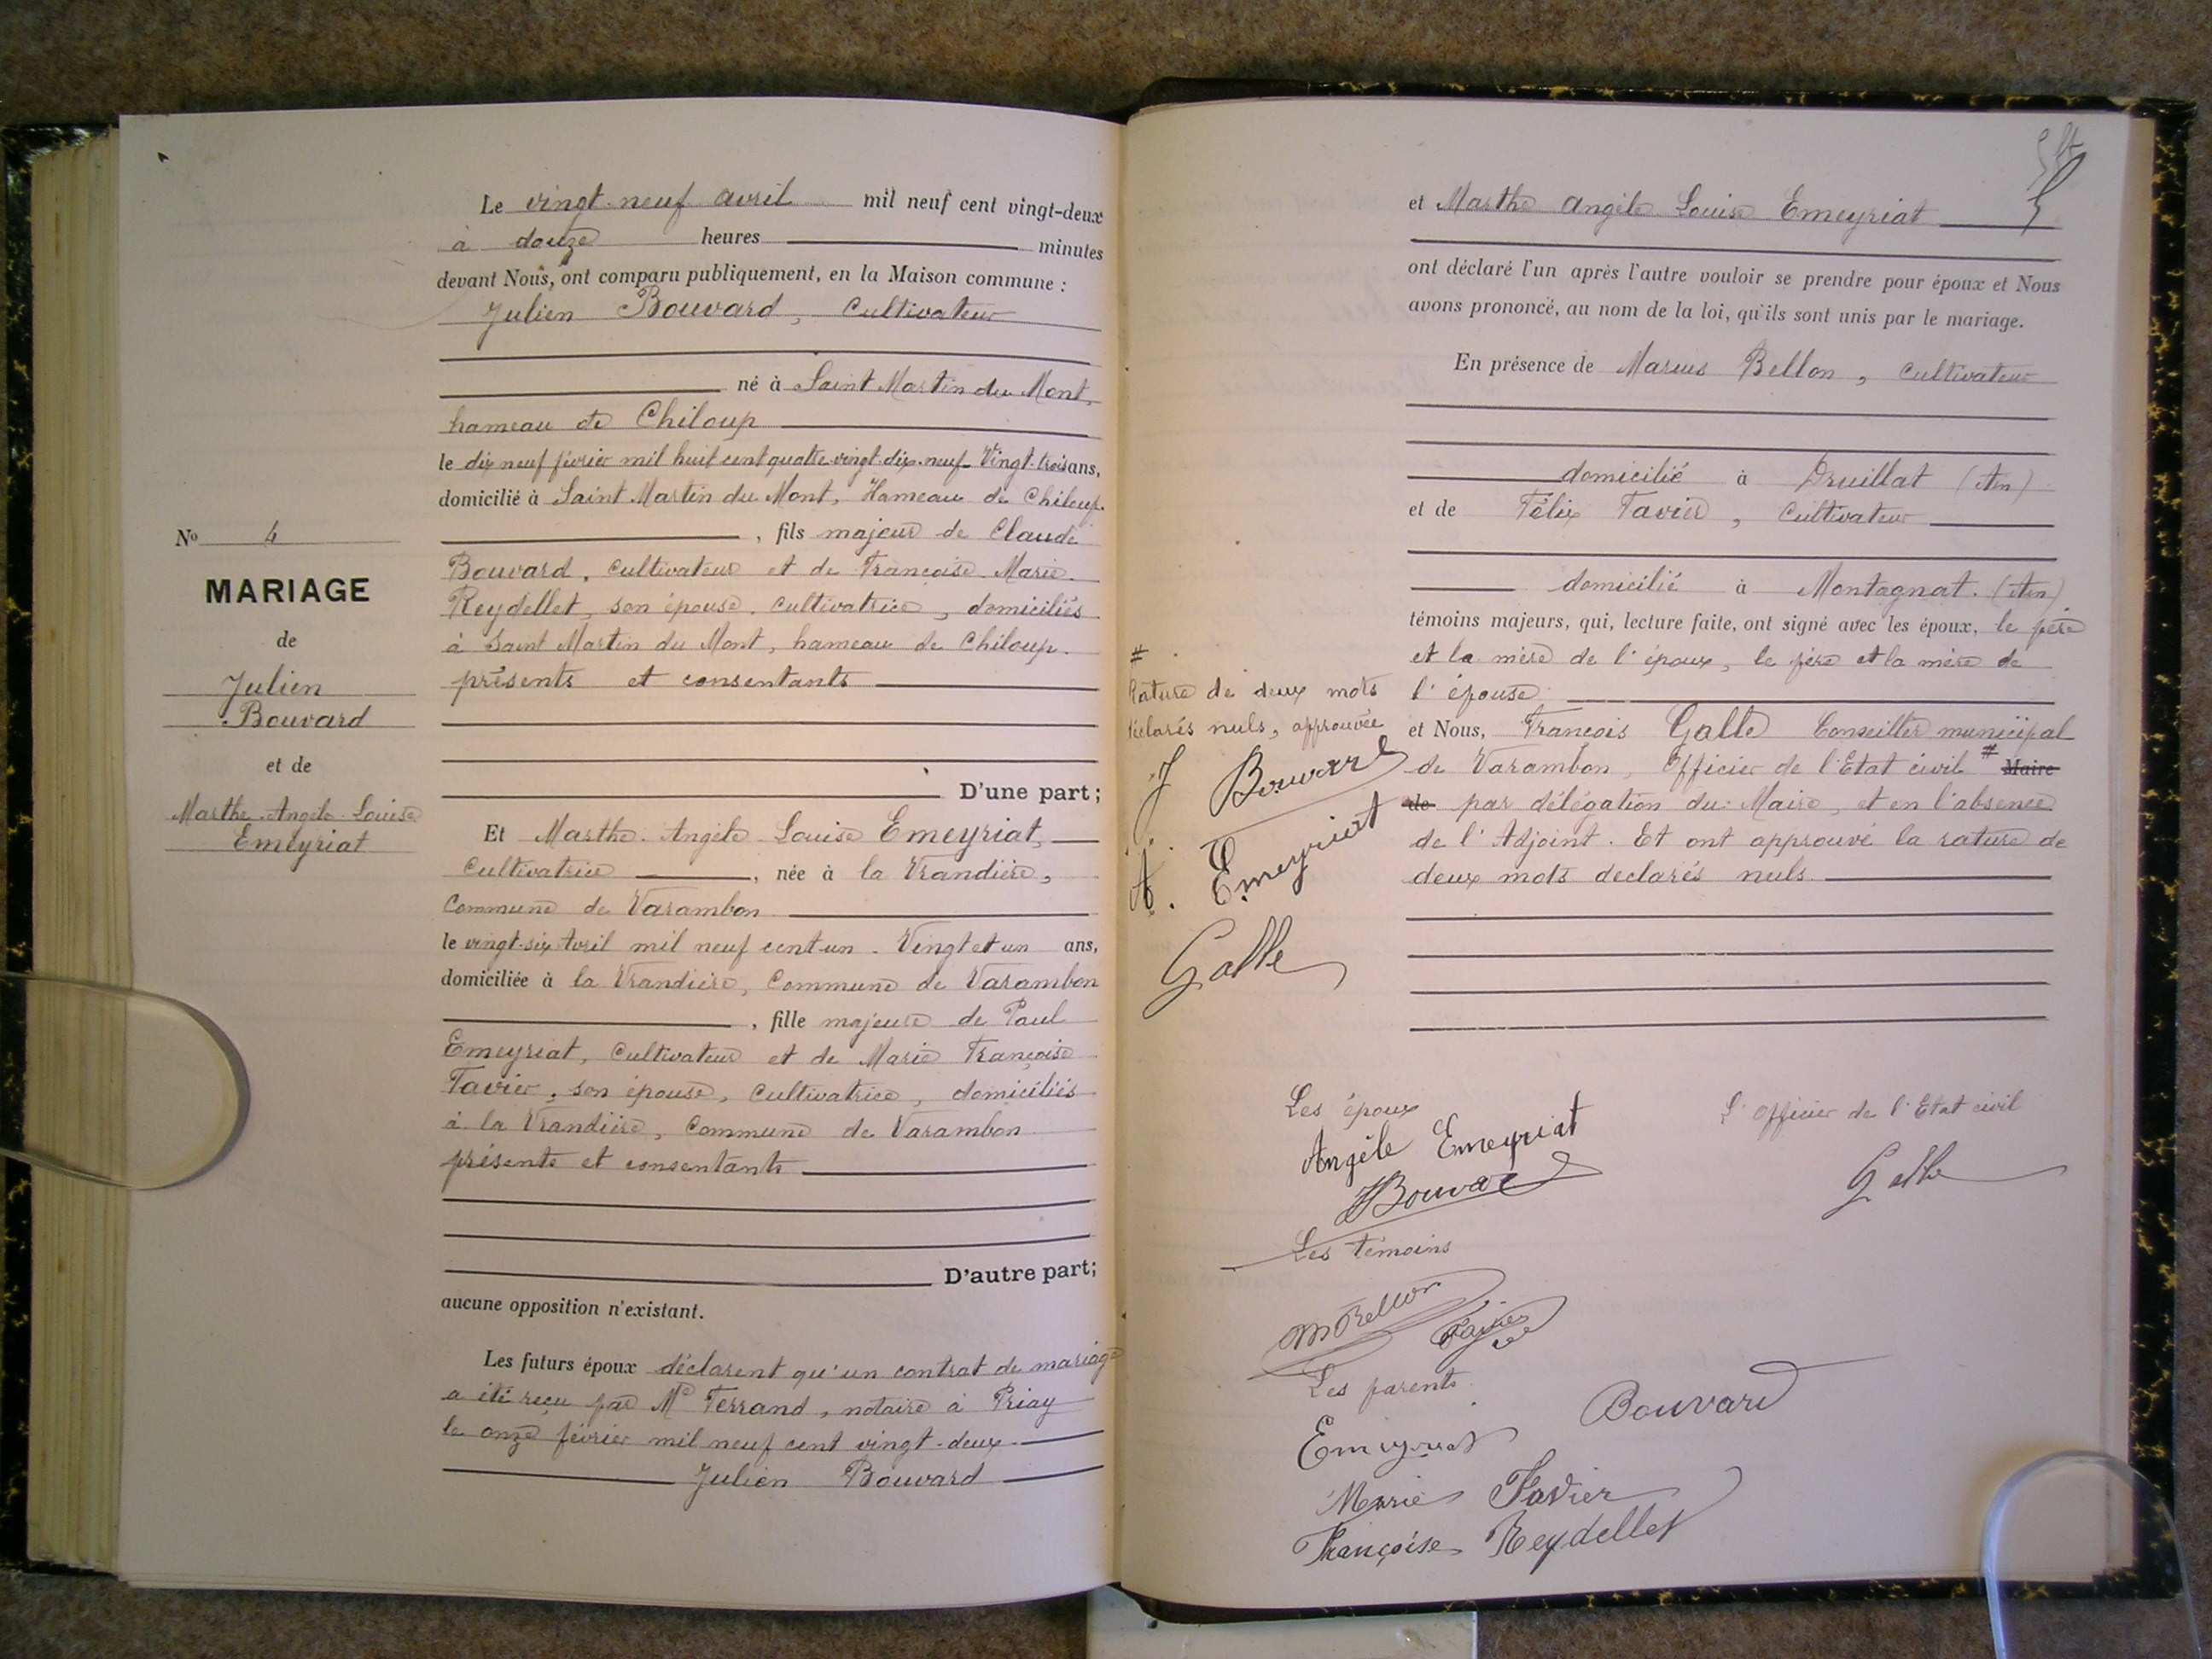 Nº 4
MARIAGE
de
Julien
Bouvard
et de
Marthe Angèle Louise
Emeyriat
Le vingt-neuf avril mil neuf cent vingt-deux
à douze heures minutes
devant Nous, ont comparu publiquement, en la Maison commune :
Julien Bouvard, Cultivateur
né à Saint Martin du Mont,
hameau de Chiloup
le dix neuf février mil huit cent quatre-vingt-dix-neuf Vingt-trois ans,
domicilié à Saint Martin du Mont, Hameau de Chiloup.
, fils majeur de Claude
Bouvard, Cultivateur et de Françoise Marie
Reydellet, son épouse, cultivatrice, domiciliés
à Saint Martin du Mont, hameau de Chiloup.
présents et consentants
D'une part ;
Et Marthe Angèle Louise Emeyriat,
Cultivatrice , née à la Vrandière,
Commune de Varambon
le vingt-six Avril mil neuf cent-un - Vingt et un ans,
domiciliée à la Vrandière, Commune de Varambon
, fille majeure de Paul
Emeyriat, Cultivateur et de Marie Françoise
Tavier, son épouse, Cultivatrice, domiciliés
à la Vrandière, Commune de Varambon
présents et consentants
D'autre part;
aucune opposition n'existant.
Les futurs époux déclarent qu'un contrat de mariage
a été reçu par Me Ferrand, notaire à Priay
le onze février mil neuf cent vingt-deux
Julien Bouvard
et Marthe Angèle Louise Emeyriat
ont déclaré l'un après l'autre vouloir se prendre pour époux et Nous
avons prononcé, au nom de la loi, qu'ils sont unis par le mariage.
En présence de Marius Bellon, Cultivateur
domicilié à Druillat (Ain)
et de Félix Tavier, Cultivateur
domicilié à Montagnat. (Ain)
témoins majeurs, qui, lecture faite, ont signé avec les époux, le père
et la mère de l'époux, le père et la mère de
l'épouse
et Nous, François Galle Conseiller municipal
de Varambon, Officier de l'Etat civil # Maire
de par délégation du Maire, et en l'absence
de l'Adjoint. Et ont approuvé la rature de
deux mots déclarés nuls.
#
Rature de deux mots
déclarés nuls, approuvée
J Bouvard
A. Emeyriat
Galle
Les époux
Angèle Emeyriat
JBouvard
L'Officier de l'Etat civil
Galle
Les témoins
M Bellon
Tavier
Les parents
Emeyriat
Bouvard
Marie Tavier
Françoise Reydellet